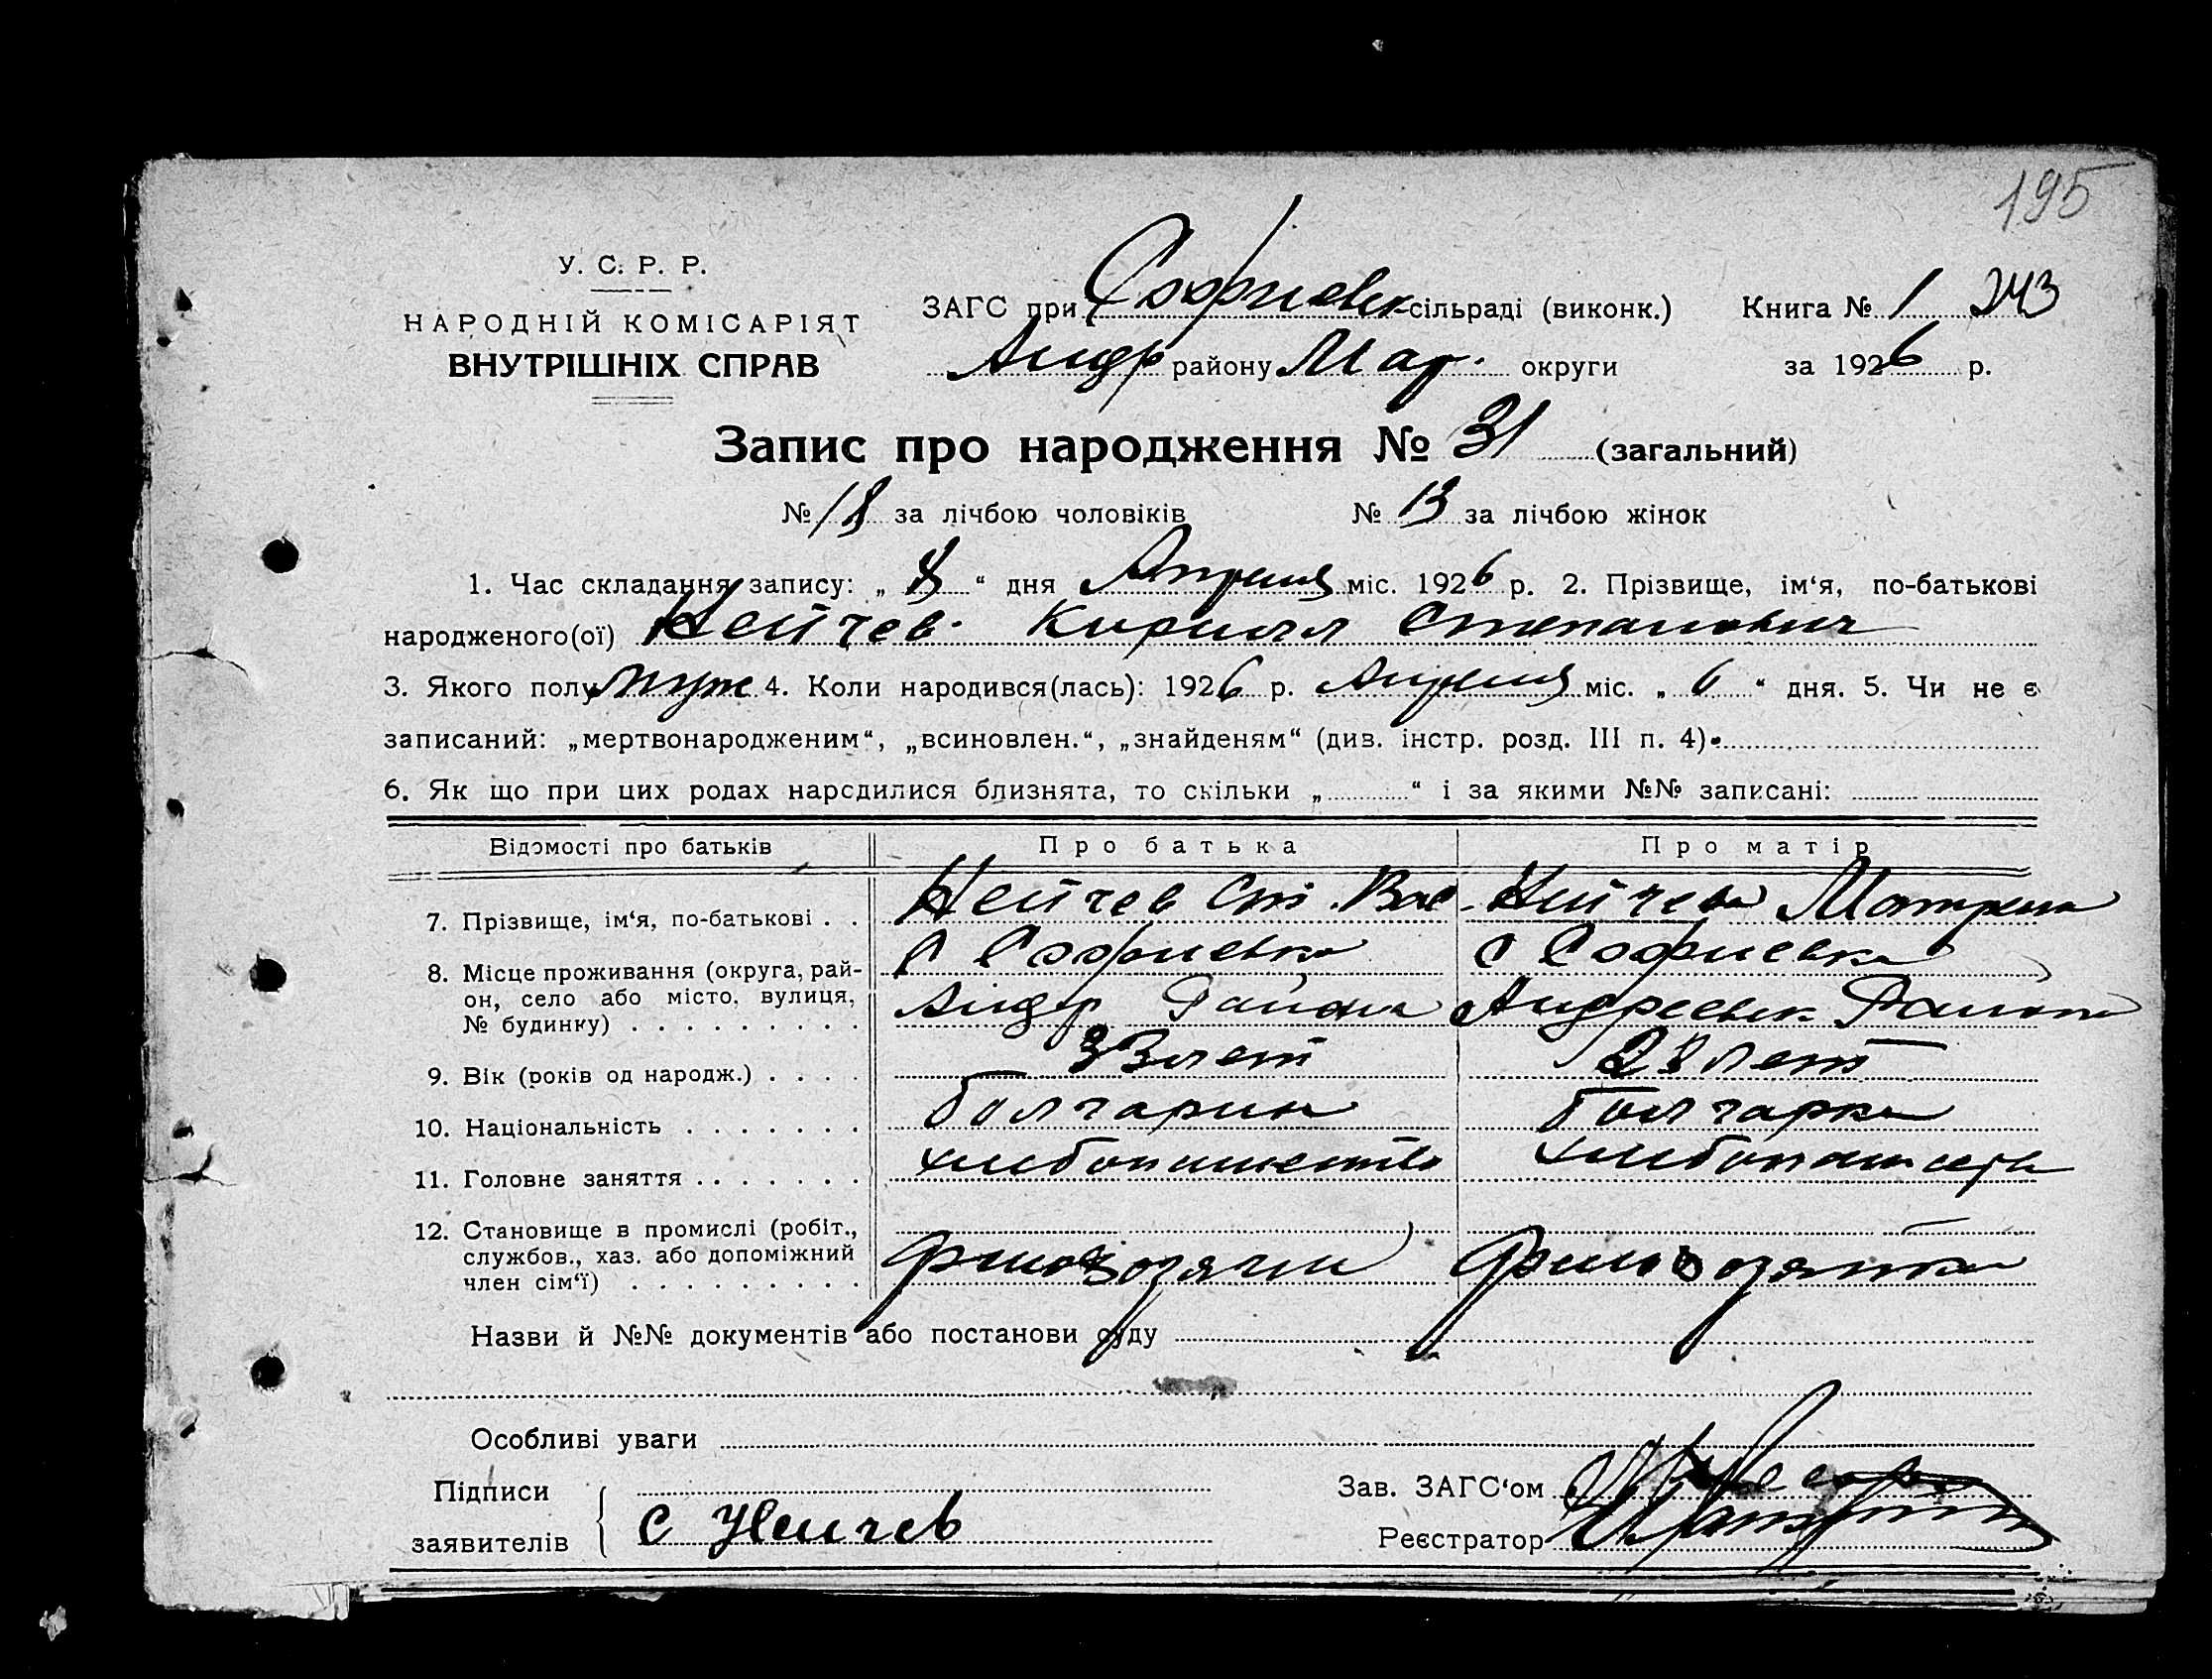 195
У. С. Р. Р.
НАРОДНІЙ КОМІСАРІЯТ
ВНУТРІШНІХ СПРАВ
ЗАГС при Софиевк сільраді (виконк.) Книга № 1 243
Андр району Мар. округи за 1926 р.
Запис про народження № 31 (загальний)
№ 18 за лічбою чоловіків № 13 за лічбою жінок
1. Час складання запису: „ 8 “ дня Апреля міс. 1926 р. 2. Прізвище, ім‘я, по-батькові
народженого(ої) Нейчев Кирилл Степанович
3. Якого полу муж 4. Коли народився(лась): 1926 р. Апреля міс. „ 6 “ дня. 5. Чи не є
записаний: „мертвонародженим“, „всиновлен.“, „знайденям“ (див. інстр. розд. III п. 4)
6. Як що при цих родах народилися близнята, то скільки „ “ і за якими №№ записані:
Відомості про батьків Про батька Про матір
7. Прізвище, ім‘я, по-батькові . . Нейчев Ст. Вас Нейчева Матрена
8. Місце проживання (округа, рай- с Софиевка с Софиевка
он, село або місто, вулиця,
№ будинку) . . . . . . . . . Андр Района Андреевск Района
9. Вік (років од народж.) . . . . 33 лет 28 лет
10. Національність . . . . . . . болгарин болгарка
11. Головне заняття . . . . . . . хлебопашество хлебопашество
12. Становище в промислі (робіт.,
службов., хаз. або допоміжний
член сім‘ї) . . . . . . . . .
Назви й №№ документів або постанови суду
Особливі уваги
Підписи Зав. ЗАГС‘ом
заявителів С Нейчев Реєстратор